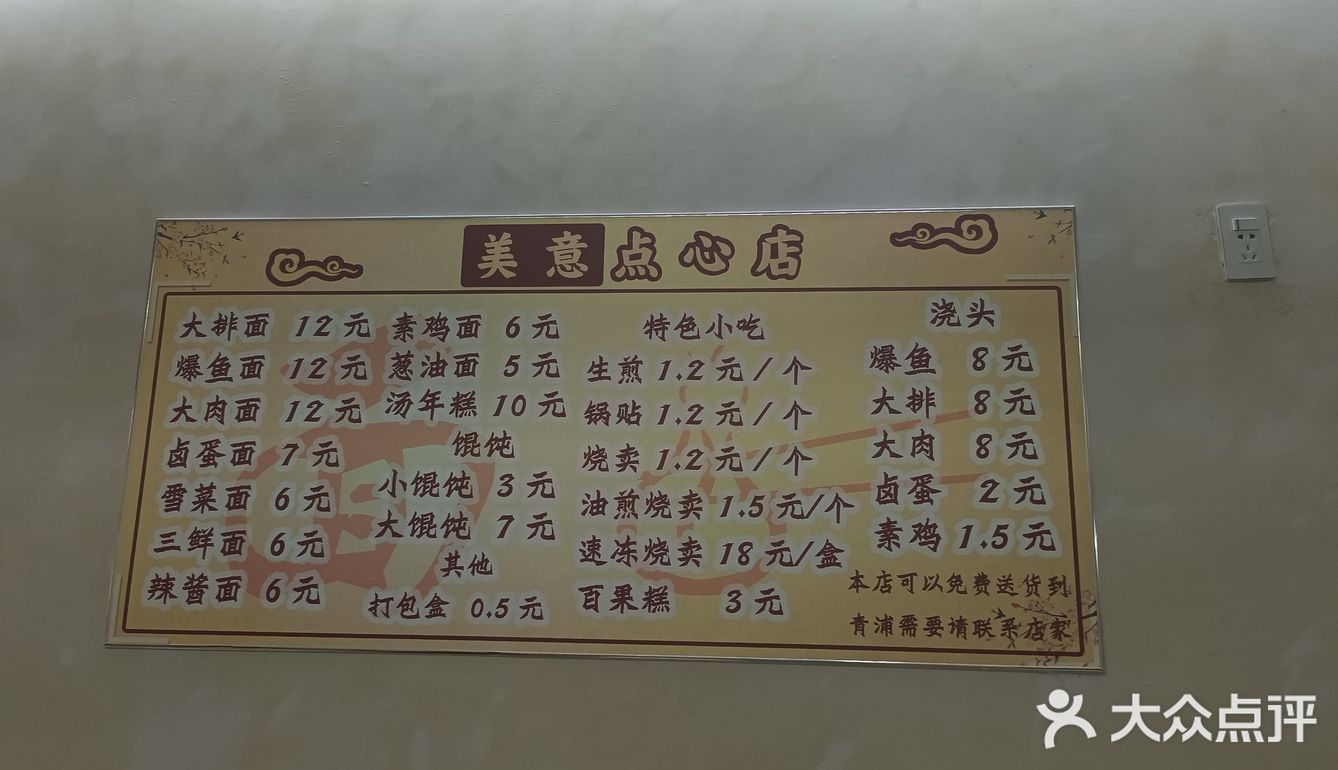 美意点心店
大排面 12元
爆鱼面 12元
大肉面 12元
卤蛋面 7元
雪菜面 6元
三鲜面 6元
辣酱面 6元
素鸡面 6元
葱油面 5元
汤年糕 10元
馄饨
小馄饨 3元
大馄饨 7元
其他
打包盒 0.5元
特色小吃
生煎 1.2元/个
锅贴 1.2元/个
烧卖 1.2元/个
油煎烧卖 1.5元/个
速冻烧卖 18元/盒
百果糕 3元
浇头
爆鱼 8元
大排 8元
大肉 8元
卤蛋 2元
素鸡 1.5元
本店可以免费送货到
青浦需要请联系店家
大众点评